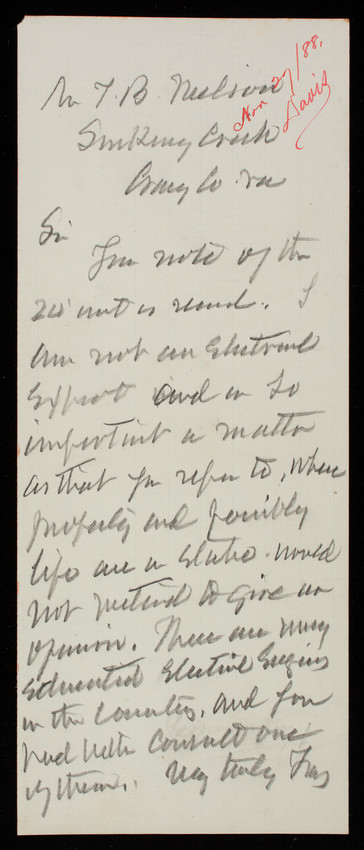 Mr T. B. Nelson
Nov 27/88.
Davis
Sinking Creek
Craig Co. Va
Sir
Your note of the
20 inst is recd. I
am not an Electrical
Expert and in so
important a matter
as that you refer to, where
property and possibly
life are at stake. would
not pretend to give an
opinion. There are many
Educated Electrical Engins
in the Country, and you
had better Consult one
of them. Very truly Yrs